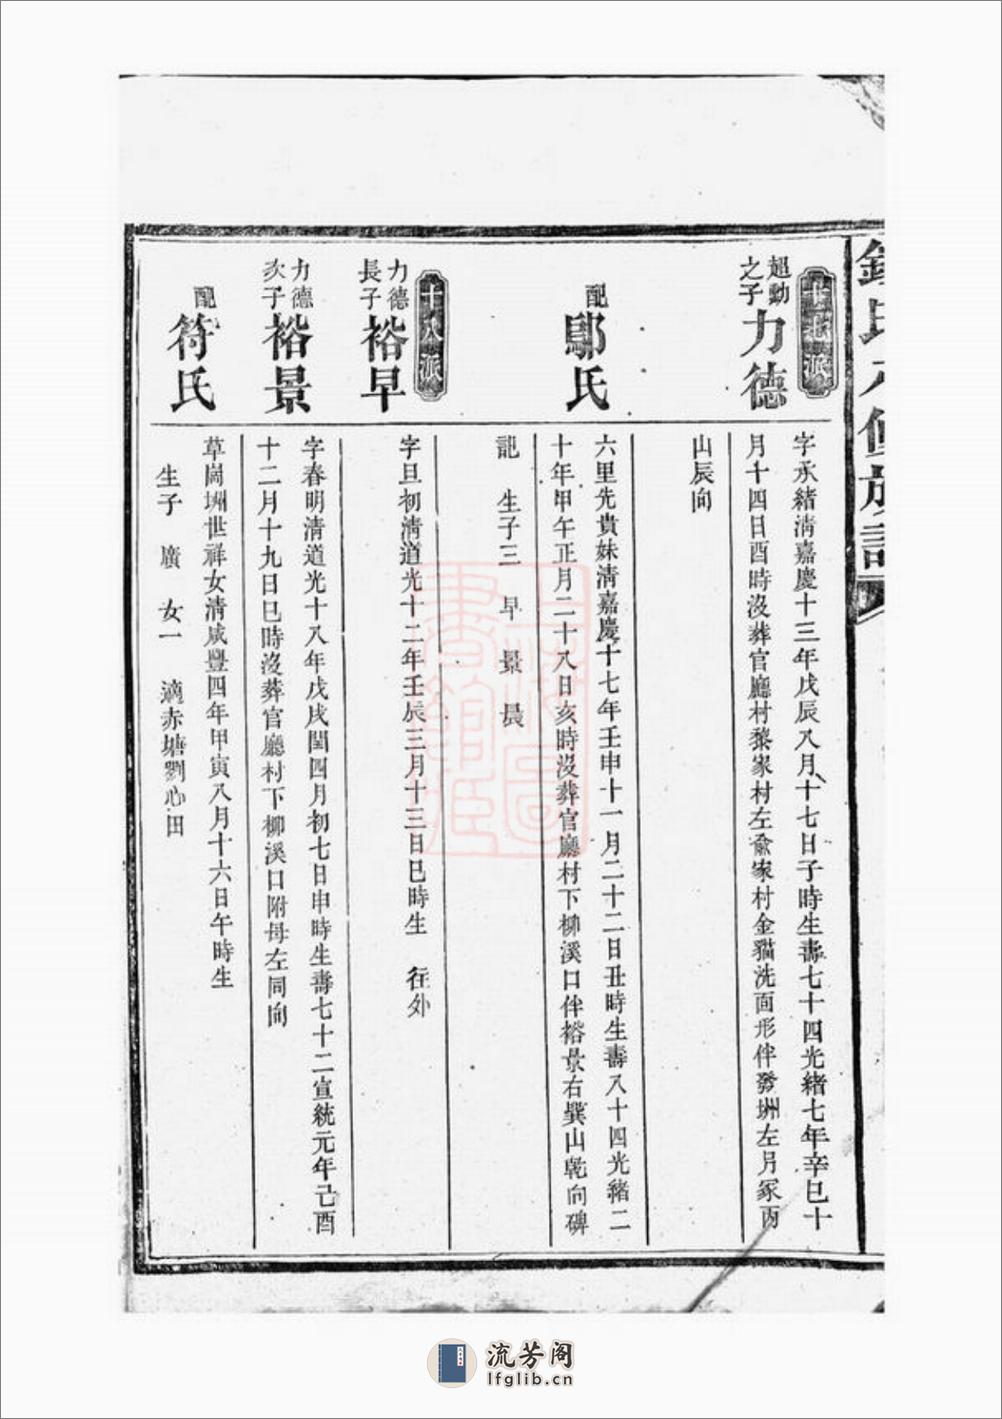 鍾氏八修族譜
十七派
超勳之子 力德
字承緒淸嘉慶十三年戊辰八月十七日子時生壽七十四光緒七年辛巳十
月十四日酉時沒葬官廳村黎家村左俞家村金貓洗面形伴發琳左另冢丙
山辰向
配 鄔氏
六里先貴妹淸嘉慶十七年壬申十一月二十二日丑時生壽八十四光緒二
十年甲午正月二十八日亥時沒葬官廳村下柳溪口伴裕景右巽山乾向碑
記 生子三 早 景 晨
十八派
力德長子 裕早
字旦初淸道光十二年壬辰三月十三日巳時生 往外
力德次子 裕景
字春明淸道光十八年戊戌閏四月初七日申時生壽七十二宣統元年己酉
十二月十九日巳時沒葬官廳村下柳溪口附母左同向
配 符氏
草崗洲世祥女淸咸豐四年甲寅八月十六日午時生
生子 廣 女一 適赤塘劉心田
上海圖書館藏
流芳阁
lfglib.cn